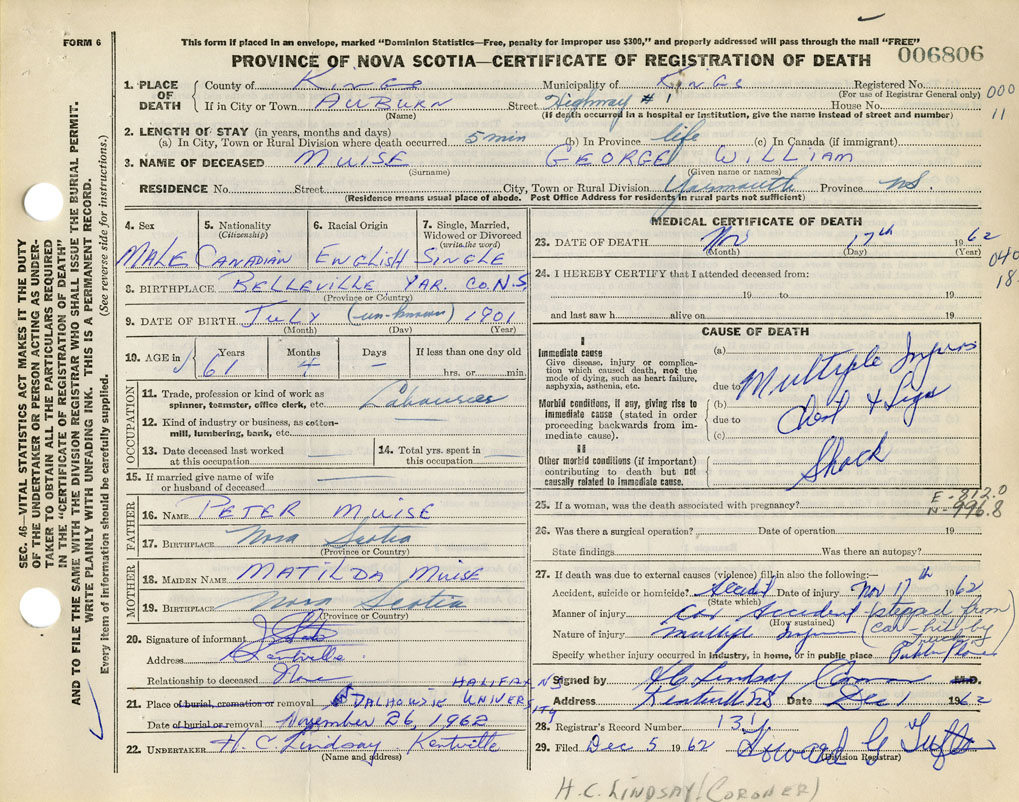 FORM 6
This form if placed in an envelope, marked "Dominion Statistics—Free, penalty for improper use $300," and properly addressed will pass through the mail "FREE"
PROVINCE OF NOVA SCOTIA—CERTIFICATE OF REGISTRATION OF DEATH
006806
1. PLACE OF DEATH
County of Kings Municipality of Kings Registered No.
(For use of Registrar General only)
000
11
If in City or Town AUBURN Street Highway #1 House No.
(Name) (If death occurred in a hospital or institution, give the name instead of street and number)
2. LENGTH OF STAY (in years, months and days)
(a) In City, Town or Rural Division where death occurred 5 min (b) In Province life (c) In Canada (if immigrant)
3. NAME OF DECEASED MUISE GEORGE WILLIAM
(Surname) (Given name or names)
RESIDENCE No. Street City, Town or Rural Division Yarmouth Province NS.
(Residence means usual place of abode. Post Office Address for residents in rural parts not sufficient)
4. Sex 5. Nationality (Citizenship) 6. Racial Origin 7. Single, Married, Widowed or Divorced (write the word)
MALE CANADIAN ENGLISH SINGLE
8. BIRTHPLACE BELLEVILLE YAR. CO. N.S
(Province or Country)
9. DATE OF BIRTH JULY (un-known) 1901
(Month) (Day) (Year)
10. AGE in Years Months Days If less than one day old
61 4 — hrs. or min.
OCCUPATION
11. Trade, profession or kind of work as spinner, teamster, office clerk, etc.
12. Kind of industry or business, as cotton-mill, lumbering, bank, etc.
13. Date deceased last worked at this occupation —
14. Total yrs. spent in this occupation —
15. If married give name of wife or husband of deceased —
FATHER
16. NAME PETER MUISE
17. BIRTHPLACE Nova Scotia
(Province or Country)
MOTHER
18. MAIDEN NAME MATILDA MUISE
19. BIRTHPLACE Nova Scotia
(Province or Country)
20. Signature of informant
Address Kentville
Relationship to deceased None
21. Place of burial, cremation or removal DALHOUSIE UNIVERSITY HALIFAX NS
Date of burial or removal November 26, 1962
22. UNDERTAKER H. C. Lindsay Kentville
(Name and address)
MEDICAL CERTIFICATE OF DEATH
23. DATE OF DEATH Nov 17th 1962
(Month) (Day) (Year)
040
18
24. I HEREBY CERTIFY that I attended deceased from:
19 to 19
and last saw h alive on 19
CAUSE OF DEATH
I
Immediate cause
Give disease, injury or complication which caused death, not the mode of dying, such as heart failure, asphyxia, asthenia, etc.
Morbid conditions, if any, giving rise to immediate cause (stated in order proceeding backwards from immediate cause).
II
Other morbid conditions (if important) contributing to death but not causally related to immediate cause.
(a)
due to Multiple Injuries
(b)
due to Chest & Legs
(c)
Shock
25. If a woman, was the death associated with pregnancy?
E-812.0
N-996.8
26. Was there a surgical operation? Date of operation 19
State findings Was there an autopsy?
27. If death was due to external causes (violence) fill in also the following:—
Accident, suicide or homicide? Accident Date of injury Nov 17th 1962
(State which)
Manner of injury Car Accident (stepped from car - hit by
(How sustained)
Nature of injury multiple injuries
Specify whether injury occurred in industry, in home, or in public place Public Place
Signed by H C Lindsay Coroner M.D.
Address Kentville NS Date Dec 1 1962
28. Registrar's Record Number 131
29. Filed Dec 5 1962 Howard G Tufts
(Division Registrar)
H.C. LINDSAY (CORONER)
SEC. 46—VITAL STATISTICS ACT MAKES IT THE DUTY
OF THE UNDERTAKER OR PERSON ACTING AS UNDER-
TAKER TO OBTAIN ALL THE PARTICULARS REQUIRED
IN THE "CERTIFICATE OF REGISTRATION OF DEATH"
AND TO FILE THE SAME WITH THE DIVISION REGISTRAR WHO SHALL ISSUE THE BURIAL PERMIT.
WRITE PLAINLY WITH UNFADING INK. THIS IS A PERMANENT RECORD.
Every item of information should be carefully supplied. (See reverse side for instructions.)